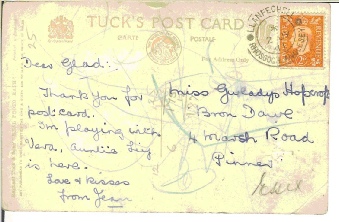 TUCK'S POST CARD
CARTE POSTALE
For Address Only
25
Dear Glad:
Thank you for
postcard.
I'm playing with
Vera, auntie Lily
is here.
Love & kisses
from Jean
Miss Gwladys Hopcroft
Bron Dawe
4 Marsh Road
Pinner